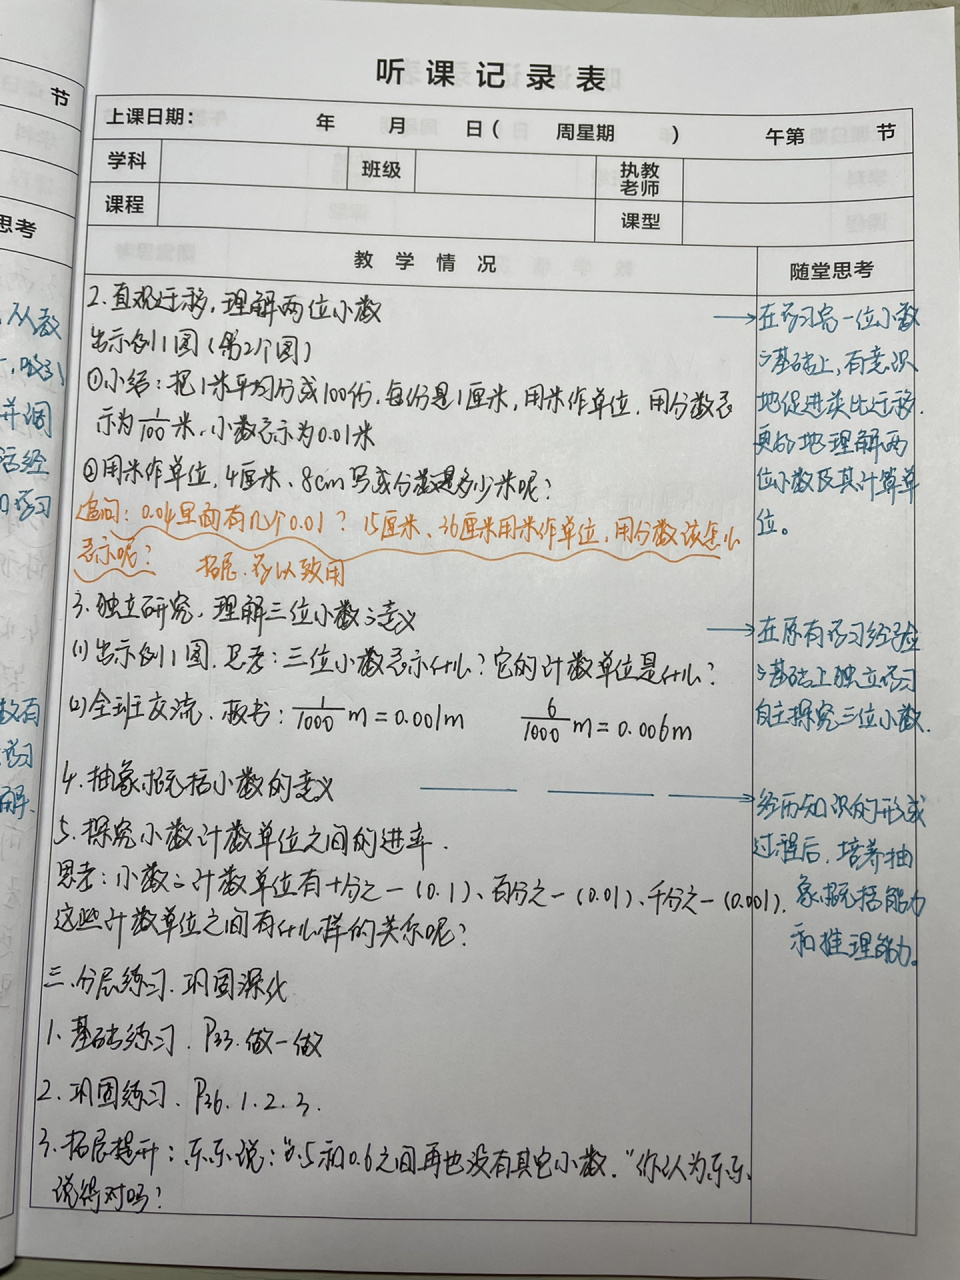 节
思考
从教
并调
活经
学习
听课记录表
上课日期： 年 月 日（ 周星期 ） 午第 节
学科 班级 执教老师
课程 课型
教学情况 随堂思考
2.直观迁移，理解两位小数
出示例1图（第2个图）
①小结：把1米平均分成100份，每份是1厘米，用米作单位，用分数表
示为1/100米，小数表示为0.01米
②用米作单位，4厘米、8cm写成分数是多少米呢？
追问：0.04里面有几个0.01？15厘米、36厘米用米作单位，用分数该怎么
表示呢？ 拓展，学以致用
3.独立研究，理解三位小数之意义
(1)出示例1图，思考：三位小数表示什么？它的计数单位是什么？
(2)全班交流，板书：1/1000 m=0.001m 6/1000 m=0.006m
4.抽象概括小数的意义
5.探究小数计数单位之间的进率.
思考：小数之计数单位有十分之一(0.1)、百分之一(0.01)、千分之一(0.001).
这些计数单位之间有什么样的关系呢？
三.分层练习.巩固深化
1.基础练习.P33.做一做
2.巩固练习.P36.1.2.3.
3.拓展提升：东东说：“0.5和0.6之间再也没有其它小数.”你认为东东
说得对吗？
→在学习完一位小数
之基础上，有意识
地促进类比迁移.
更好地理解两
位小数及其计算单
位。
→在原有学习经验
之基础上独立学习
自主探究三位小数.
→经历知识的形成
过程后，培养抽
象概括能力
和推理能力。